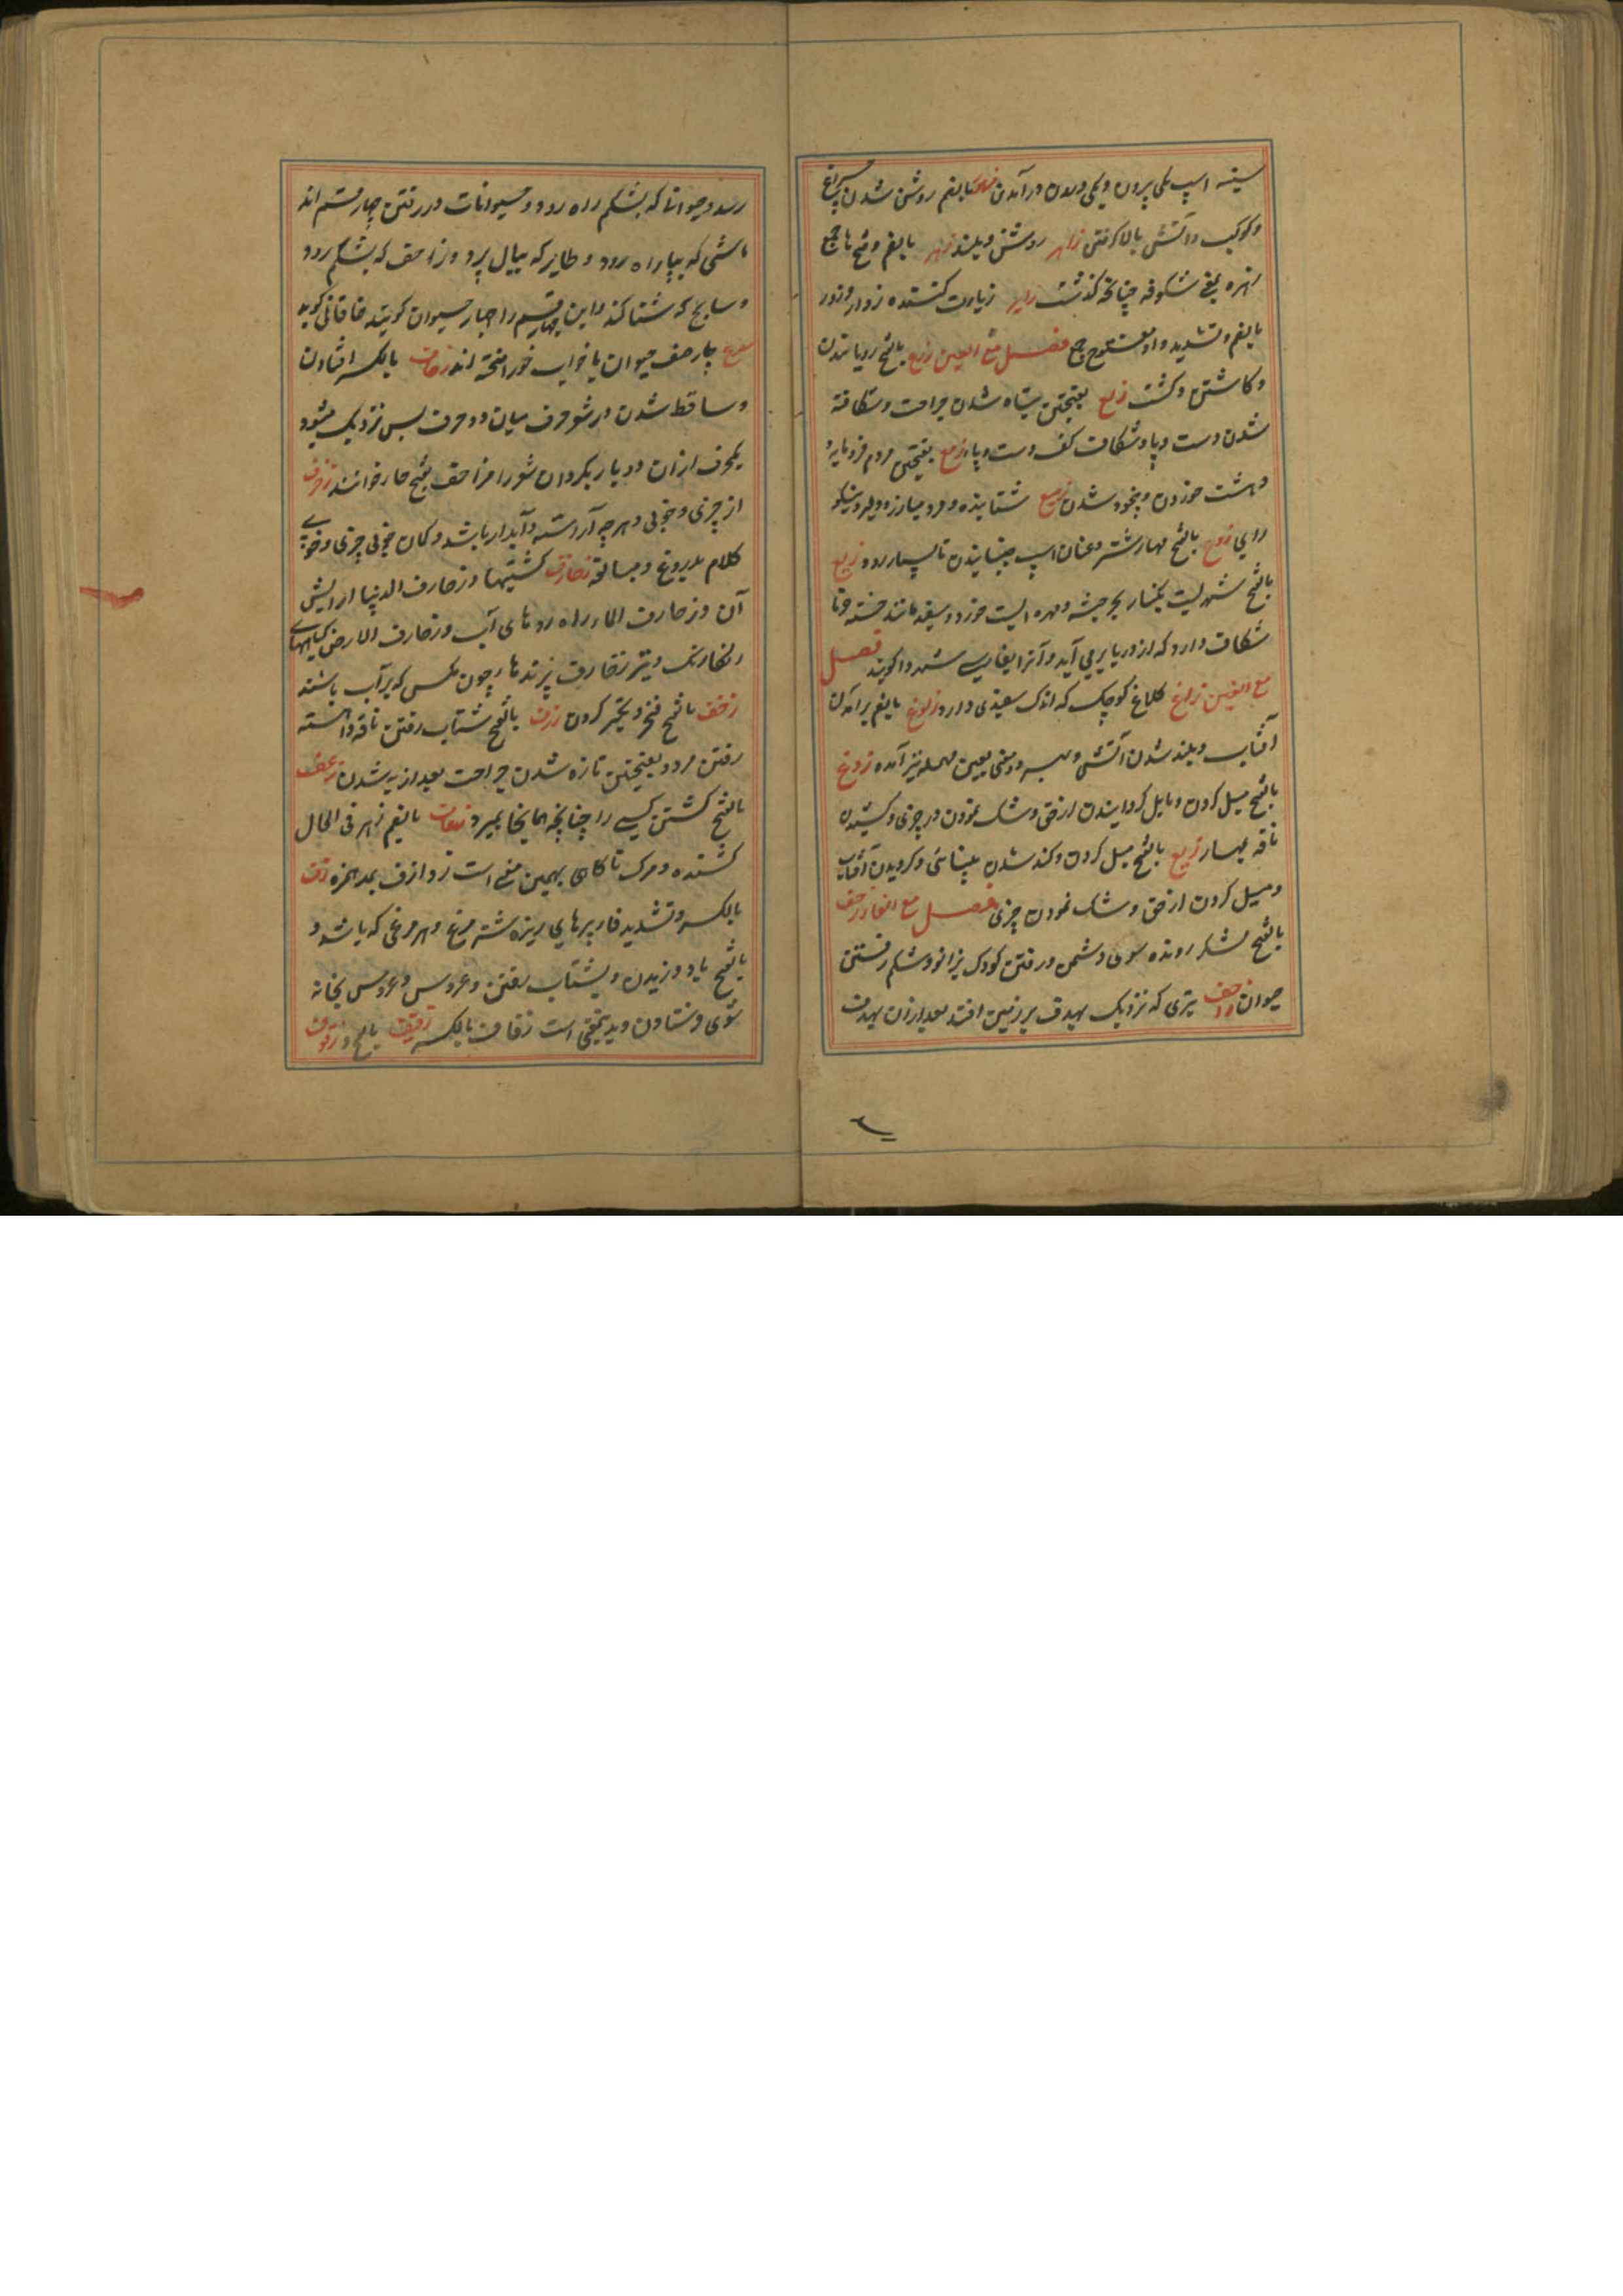 سینه اسپ یکی پرون و یکی درون درآمدن زهور بالضم روشن شدن چراغ
و کوکب و آتش بالا گرفتن زاهر روشن و بلند زهر بالضم و فتح ها جمع
زهره بمعنی شکوفه چنانکه گذشت زایر زیارت کننده زوار و زور
بالضم و تشدید واو مفتوح جمع فصل مع العین زرع بالفتح رویانیدن
و کاشتن و کشت زلع بفتحتین تباه شدن جراحت و شکافته
شدن دست و پا و شکاف کف دست و پا زمع بفتحتین مردم فرومایه و
دهشت خوردن و بیخود شدن زمیع شتابنده و مرد مبارز و دلیر و نیکو
رای زوع بالفتح مهار شتر و عنان اسپ جنبانیدن تا بسیار رود زیلع
بالفتح شهریست بکنار بحر حبشه و مهره ایست خورد و سفید مانند خسته و تا
شکاف دارد که از دریا برمی آید و آنرا بفارسی شهردا گویند فصل
مع الغین زاغ کلاغ کوچک که اندک سفیدی دارد زلوغ بالضم برآمدن
آفتاب و بلند شدن آتش و بدین معنی بعین مهمله نیز آمده زوغ
بالفتح میل کردن و مایل گردانیدن از حق و شک نمودن در چیزی و کشیدن
ناقه بمهار زیغ بالفتح میل کردن و کند شدن بینائی و گردیدن آفتاب
و میل کردن از حق و شک نمودن چیزی فصل مع الفا زحف
بالفتح لشکر رونده سوی دشمن و رفتن کودک بزانو و شکم رفتن
حیوان زاحف تیری که نزدیک بهدف بر زمین افتد بعد ازان بهدف
رسد و حیوانا که بشکم راه رود و حیوانات در رفتن چهار قسم اند
ماشی که بپا راه رود و طایر که ببال پرد و زاحف که بشکم رود
و سابح که شنا کند و این چهار قسم را چهار حیوان گویند خاقانی گوید
مصرع چار صف حیوان با خواب خور انجخته اند زحاف بالکسر افتادن
و ساقط شدن در شعر حرف میان دو حرف پس نزدیک میشود
یکحرف ازان دو بار بکردان شعر را مزاحف بفتح حا خوانند زخرف
از چیزی و خوبی و هرچه آراسته و آبدار باشد و کمان خوبی چیزی و خوبی
کلام بدروغ و مبالغه زخارف کشتیها و زخارف الدنیا آرایش
آن و زخارف الماء راه رودهای آب و زخارف الارض گیاههای
رنگارنگ و نیز زخارف پرندها چون مگس که بر آب باشند
زخف بالفتح فخر و تکبر کردن زرف بالفتح شتاب رفتن ناقه و آهسته
رفتن مرد و بفتحتین تازه شدن جراحت بعد از به شدن زعف
بالفتح کشتن کسی را چنانچه همانجا بمیرد زعاف بالضم زهر فی الحال
کشنده و مرگ ناگاه بهمین معنی است زوازف بمد همزه زف
بالکسر و تشدید فا پرهای ریزه شتر مرغ و هر مرغی که باشد و
بالفتح باد وزیدن و بشتاب رفتن و عروس و عروس بخانه
شوی فرستادن و بدینمعنی است زفاف بالکسر زفیف بالفتح و زفوف